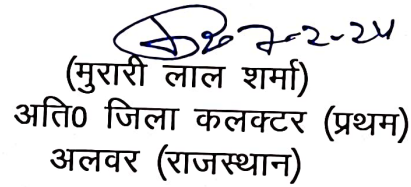 7-2-24
(मुरारी लाल शर्मा)
अति0 जिला कलक्टर (प्रथम)
अलवर (राजस्थान)